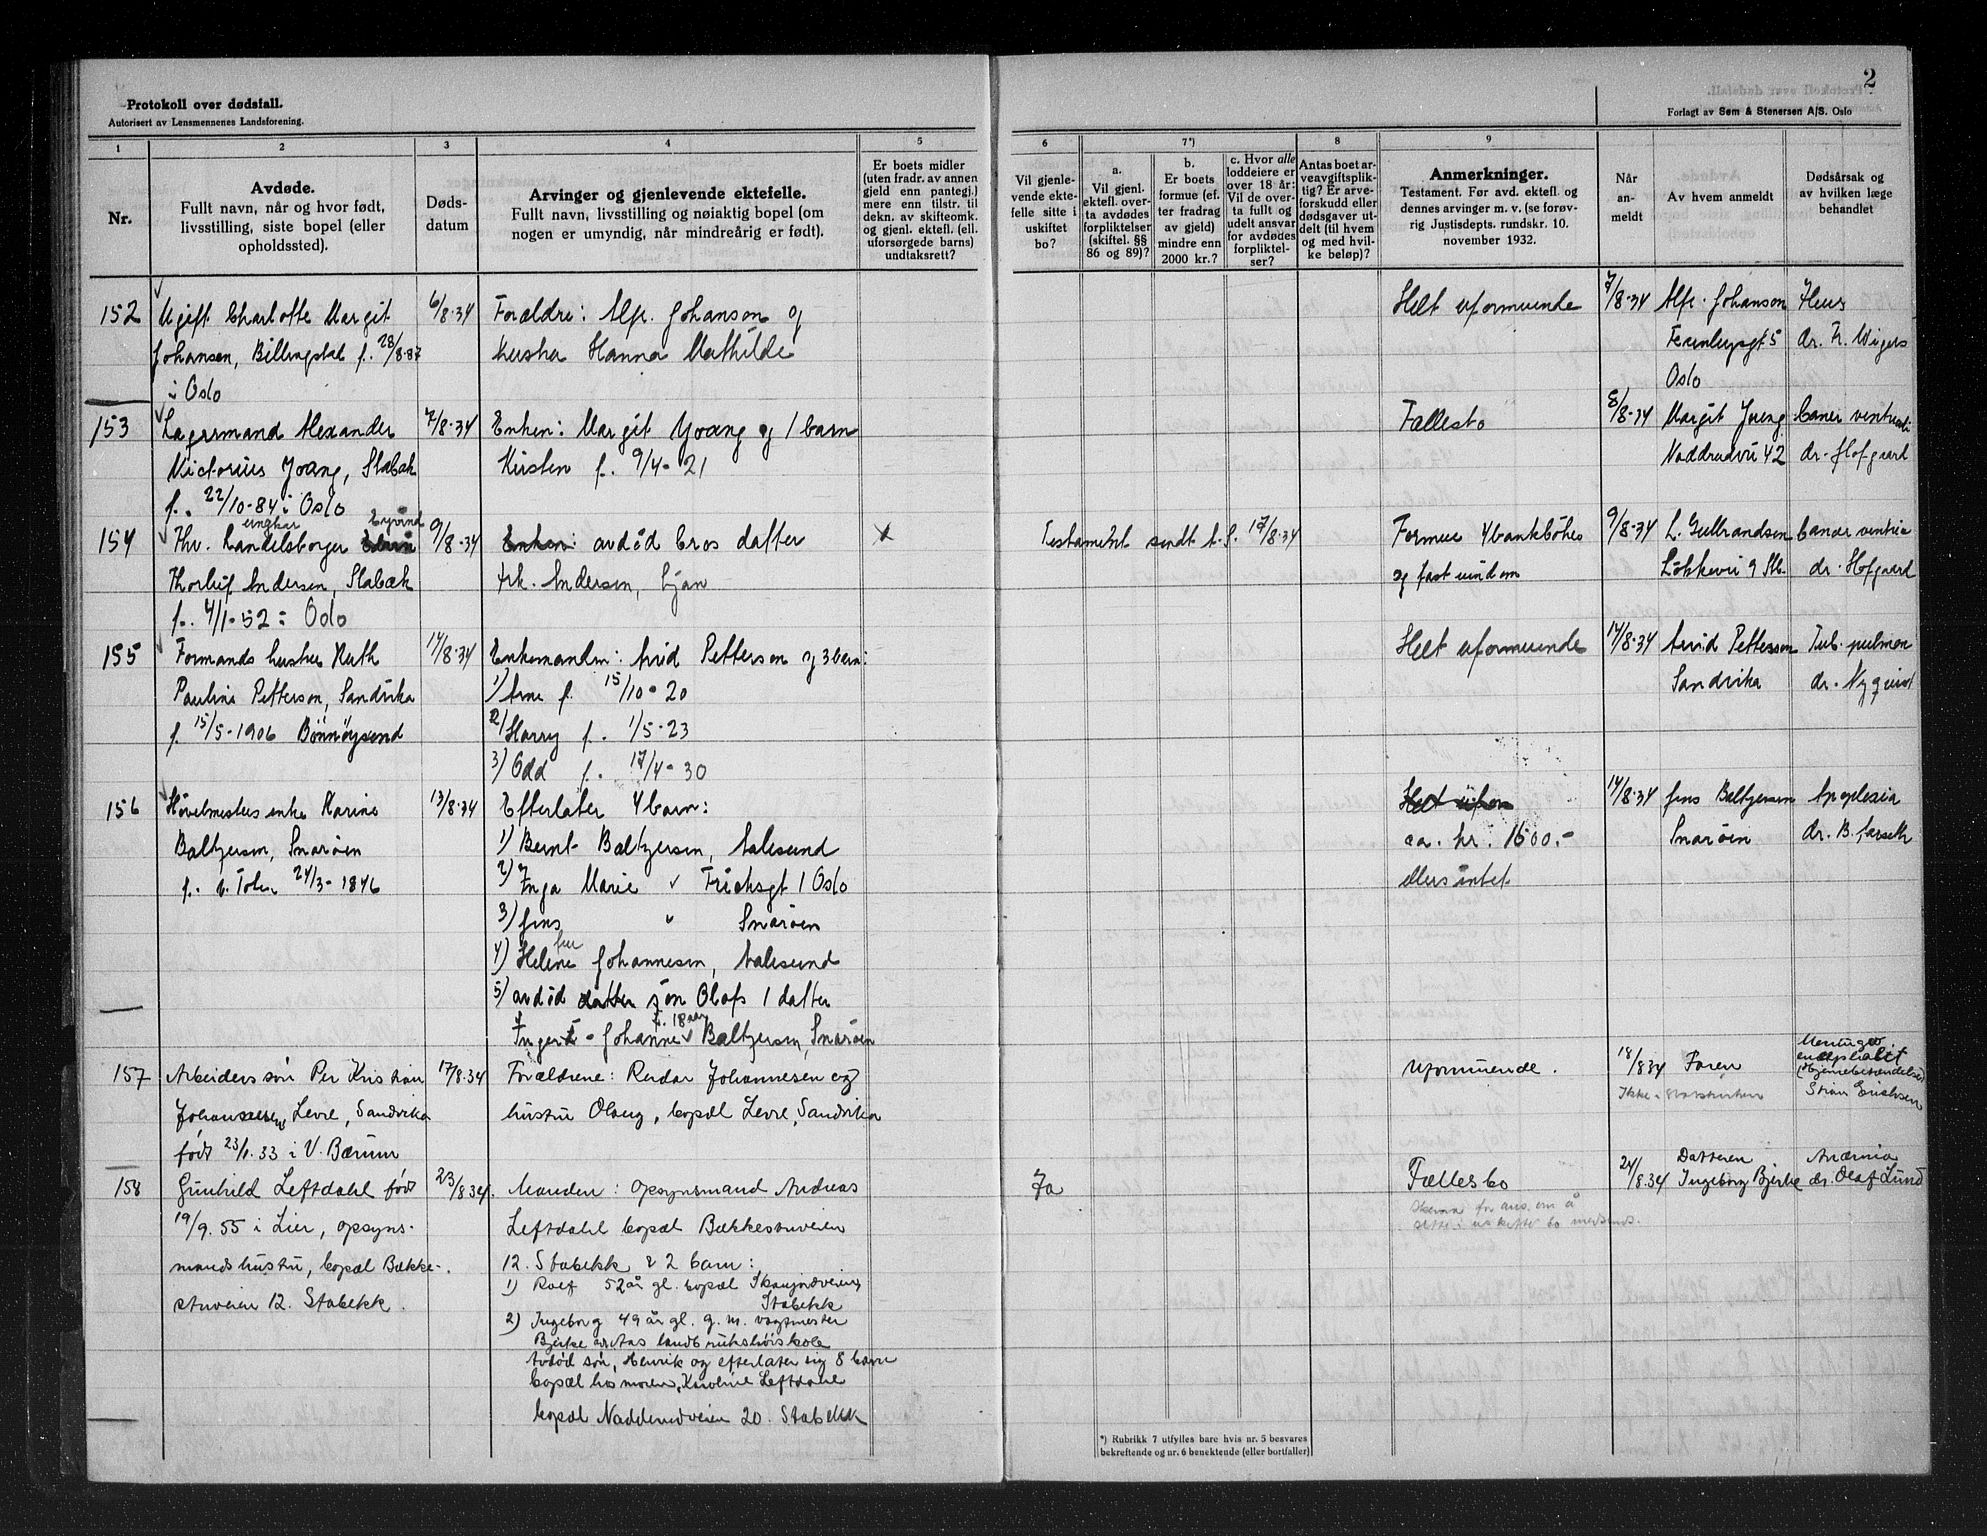 2
Protokoll over dødsfall.
Autorisert av Lensmennenes Landsforening.
Forlagt av Sem & Stenersen A/S. Oslo
1
2
3
4
5
6
7*)
8
9
Nr.
Avdøde.
Fullt navn, når og hvor født,
livsstilling, siste bopel (eller
opholdssted).
Døds-
datum
Arvinger og gjenlevende ektefelle.
Fullt navn, livsstilling og nøiaktig bopel (om
nogen er umyndig, når mindreårig er født).
Er boets midler
(uten fradr. av annen
gjeld enn pantegj.)
mere enn tilstr. til
dekn. av skifteomk.
og gjenl. ektefl. (ell.
uforsørgede barns)
undtaksrett?
Vil gjenle-
vende ekte-
felle sitte i
uskiftet
bo?
a.
Vil gjenl.
ektefl. over-
ta avdødes
forpliktelser
(skiftel. §§
86 og 89)?
b.
Er boets
formue (ef-
ter fradrag
av gjeld)
mindre enn
2000 kr.?
c. Hvor alle
loddeiere er
over 18 år:
Vil de over-
ta fullt og
udelt ansvar
for avdødes
forpliktel-
ser?
Antas boet ar-
veavgiftsplik-
tig? Er arve-
forskudd eller
dødsgaver ut-
delt (til hvem
og med hvil-
ke beløp)?
Anmerkninger.
Testament. Før avd. ektefl. og
dennes arvinger m. v. (se forøv-
rig Justisdepts. rundskr. 10.
november 1932.
Når
an-
meldt
Av hvem anmeldt
Dødsårsak og
av hvilken læge
behandlet
152
Ugift Charlotte Margit
Johansen, Billingstad f. 28/8-87
i Oslo
6/8-34
Forældre: Alfr. Johanson og
hustru Hanna Mathilde
Helt uformuende
7/8-34
Alfr. Johanson
Oslo
dr.
153
Lagermand Alexander
Victorius Yoang, Stabæk
f. 22/10-84 i Oslo
7/8-34
Enken: Margit Yoang og 1 barn
Kirsten f. 9/4-21
Fællesbo
8/8-34
Margit Yoang
Naddrudvn 42
cancer ventriculi
dr. Hofgaard
154
Hr. Handelsborger Eyvind
ungkar
Thorleif Andersen, Stabæk
f. 4/1-52 i Oslo
9/8-34
Enken: avdød bros datter
frk. Andersen, Ljan
x
Testament sendt t. S. 17/8-34
Formue 4 bankbøker
og fast eiendom
9/8-34
L. Gulbrandsen
Løkkevn 9 Stb.
cancer ventric
dr. Hofgaard
155
Formands hustru Ruth
Pauline Petterson, Sandvika
f. 15/5-1906 Brønnøysund
14/8-34
Enkemanden: Arvid Petterson og 3 barn:
1) Arne f. 15/10-20
2) Harry f. 1/5-23
3) Odd f. 17/4-30
Helt uformuende
14/8-34
Arvid Petterson
Sandvika
Tub. pulmon
dr. Nyquist
156
Høvelmesters enke Karine
Baltzersen, Snarøen
f. i Toten 24/3-1846
13/8-34
Efterlater 4 barn:
1) Bernt Baltzersen, Aalesund
2) Inga Marie " Frichsgt 1 Oslo
3) Jens " Snarøen
4) Helene fru Johannesen, Aalesund
5) avdød datter søn Olafs 1 datter
Inger - Johanne f. 18 aar Baltzersen, Snarøen
Helt ufor
ca. kr. 1600.-
ellers intet
14/8-34
Jens Baltzersen
Snarøen
Apoplexia
dr. B. Aarseth
157
Arbeiders søn Per Kristian
Johannesen, Levre, Sandvika
født 23/1. 33 i V. Bærum
17/8.34
Forældrene: Reidar Johannesen og
hustru Olaug, bopæl Levre, Sandvika
Uformuende.
18/8 34
Faren
Ikke i statskirken
(Hjernebetændelse)
Stian Erichsen
158
Gunhild Leftdahl født
19/9. 55 i Lier, opsyns-
mands hustru, bopæl Bække-
stuveien 12. Stabekk.
23/8.34.
Manden: opsynsmand Andreas
Leftdahl bopæl Bækkestuveien
12. Stabekk & 2 barn:
1) Rolf 52 år gl. bopæl
Stabekk
2) Ingeborg 49 år gl. g. m. vagtmester
Bjerke ved Aas landbrukshøiskole
Avdød søn, Henrik og efterlater sig 8 barn
bopæl hos moren, Karoline Leftdahl
bopæl Nadderudveien 20. Stabekk
Ja
Fællesbo
Skema for ans. om å
sitte i uskiftet bo medsendt.
24/8.34
Datteren
Ingeborg Bjerke
Anæmia
dr. Olaf Lund
*) Rubrikk 7 utfylles bare hvis nr. 5 besvares
bekreftende og nr. 6 benektende (eller bortfaller)